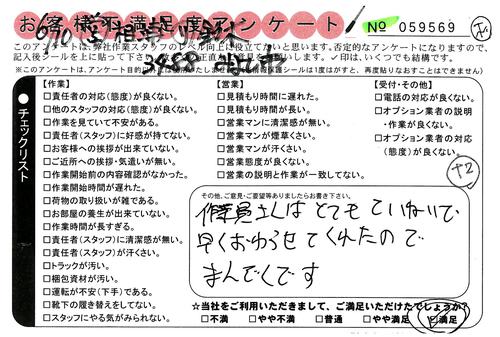 お客様満足度アンケート
No 059569
このアンケートは、弊社作業スタッフのレベル向上に役立てたいと思います。否定的なアンケートになりますので、
記入後シールを上に貼って下さい。
✓印は、いくつでも結構です。
チェックリスト
【作業】
□責任者の対応(態度)が良くない。
□他のスタッフの対応(態度)が良くない。
□作業を見ていて不安がある。
□責任者(スタッフ)に好感が持てない。
□お客様への挨拶が出来ていない。
□ご近所への挨拶・気遣いが無い。
□作業開始前の内容確認がなかった。
□作業開始時間が遅れた。
□荷物の取り扱いが雑である。
□お部屋の養生が出来ていない。
□作業時間が長すぎる。
□責任者(スタッフ)に清潔感が無い。
□責任者(スタッフ)が汗くさい。
□トラックが汚い。
□梱包資材が汚い。
□運転が不安(下手)である。
□靴下の履き替えをしてない。
□スタッフにやる気がみられない。
【営業】
□見積もり時間に遅れた。
□見積もり時間が長い。
□営業マンに清潔感が無い。
□営業マンが煙草くさい。
□営業マンが汗くさい。
□営業態度が良くない。
□営業の説明と作業が一致してない。
【受付・その他】
□電話の対応が良くない。
□オプション業者の説明
・作業が良くない。
□オプション業者の対応
(態度)が良くない。
+2
その他、ご意見・ご要望等ありましたらお書き下さい。
作業員さんは とても ていねいで、
早くおわらせてくれたので
まんぞくです
☆当社をご利用いただきまして、ご満足いただけたでしょうか?
□不満 □やや不満 □普通 □やや満足 □満足